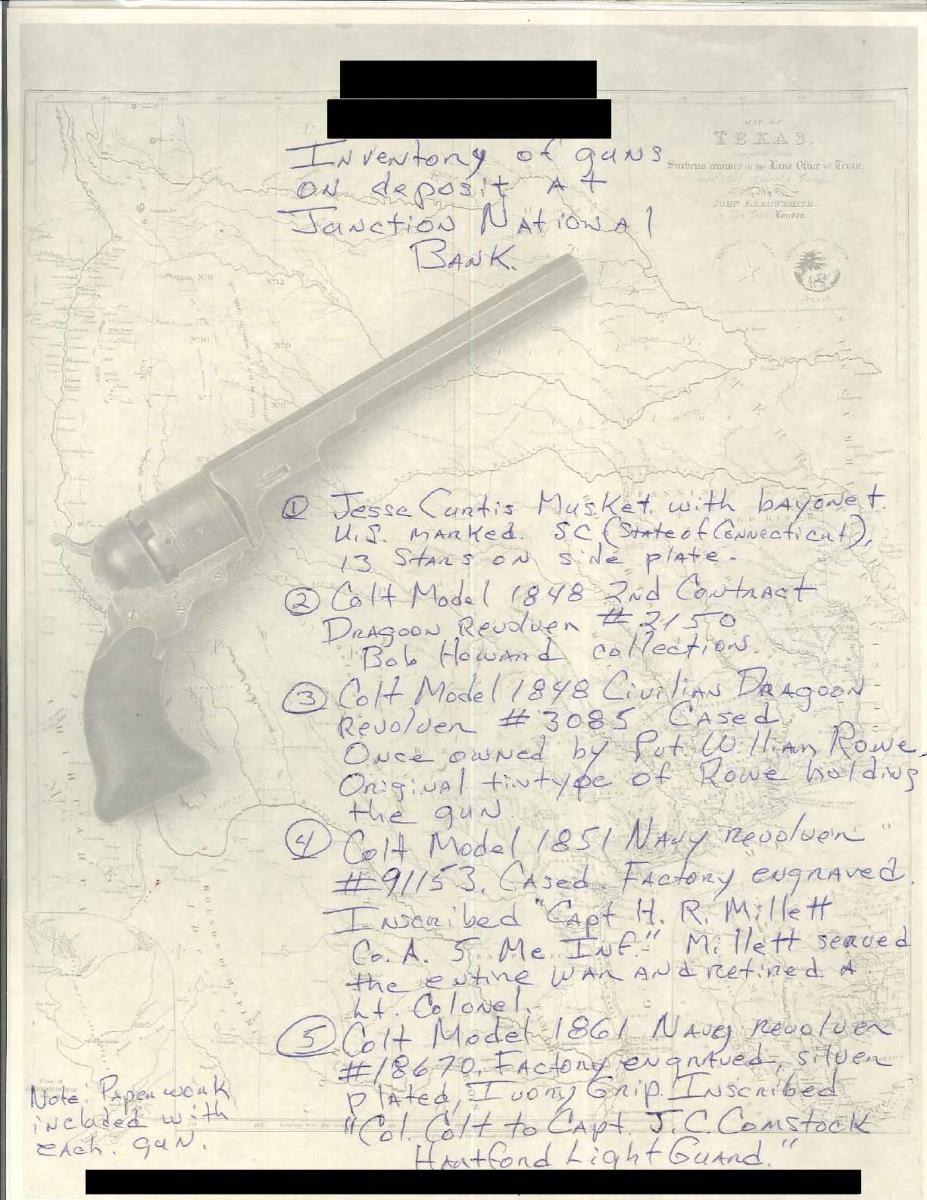 Inventory of guns
on deposit At
Junction National
Bank.
MAP OF
TEXAS,
Surveys recorded in the Land Office of Texas,
By
JOHN ARROWSMITH
London
TEXAS
① Jesse Curtis Musket with bayonet.
U.S. marked. SC (State of Connecticut),
13 Stars on side plate.
② Colt Model 1848 2nd Contract
Dragoon Revolver #2150
Bob Howard collection.
③ Colt Model 1848 Civilian Dragoon
Revolver #3085 Cased
Once owned by Pvt. William Rowe,
Original tintype of Rowe holding
the gun
④ Colt Model 1851 Navy revolver
#91153. Cased. Factory engraved.
Inscribed "Capt H. R. Millett
Co. A. 5 Me. Inf." Millett served
the entire war and retired a
Lt. Colonel.
⑤ Colt Model 1861 Navy revolver
#18670. Factory engraved, silver
plated, Ivory Grip. Inscribed
"Col. Colt to Capt. J.C. Comstock
Hartford Light Guard."
Note: Paperwork
included with
each gun.